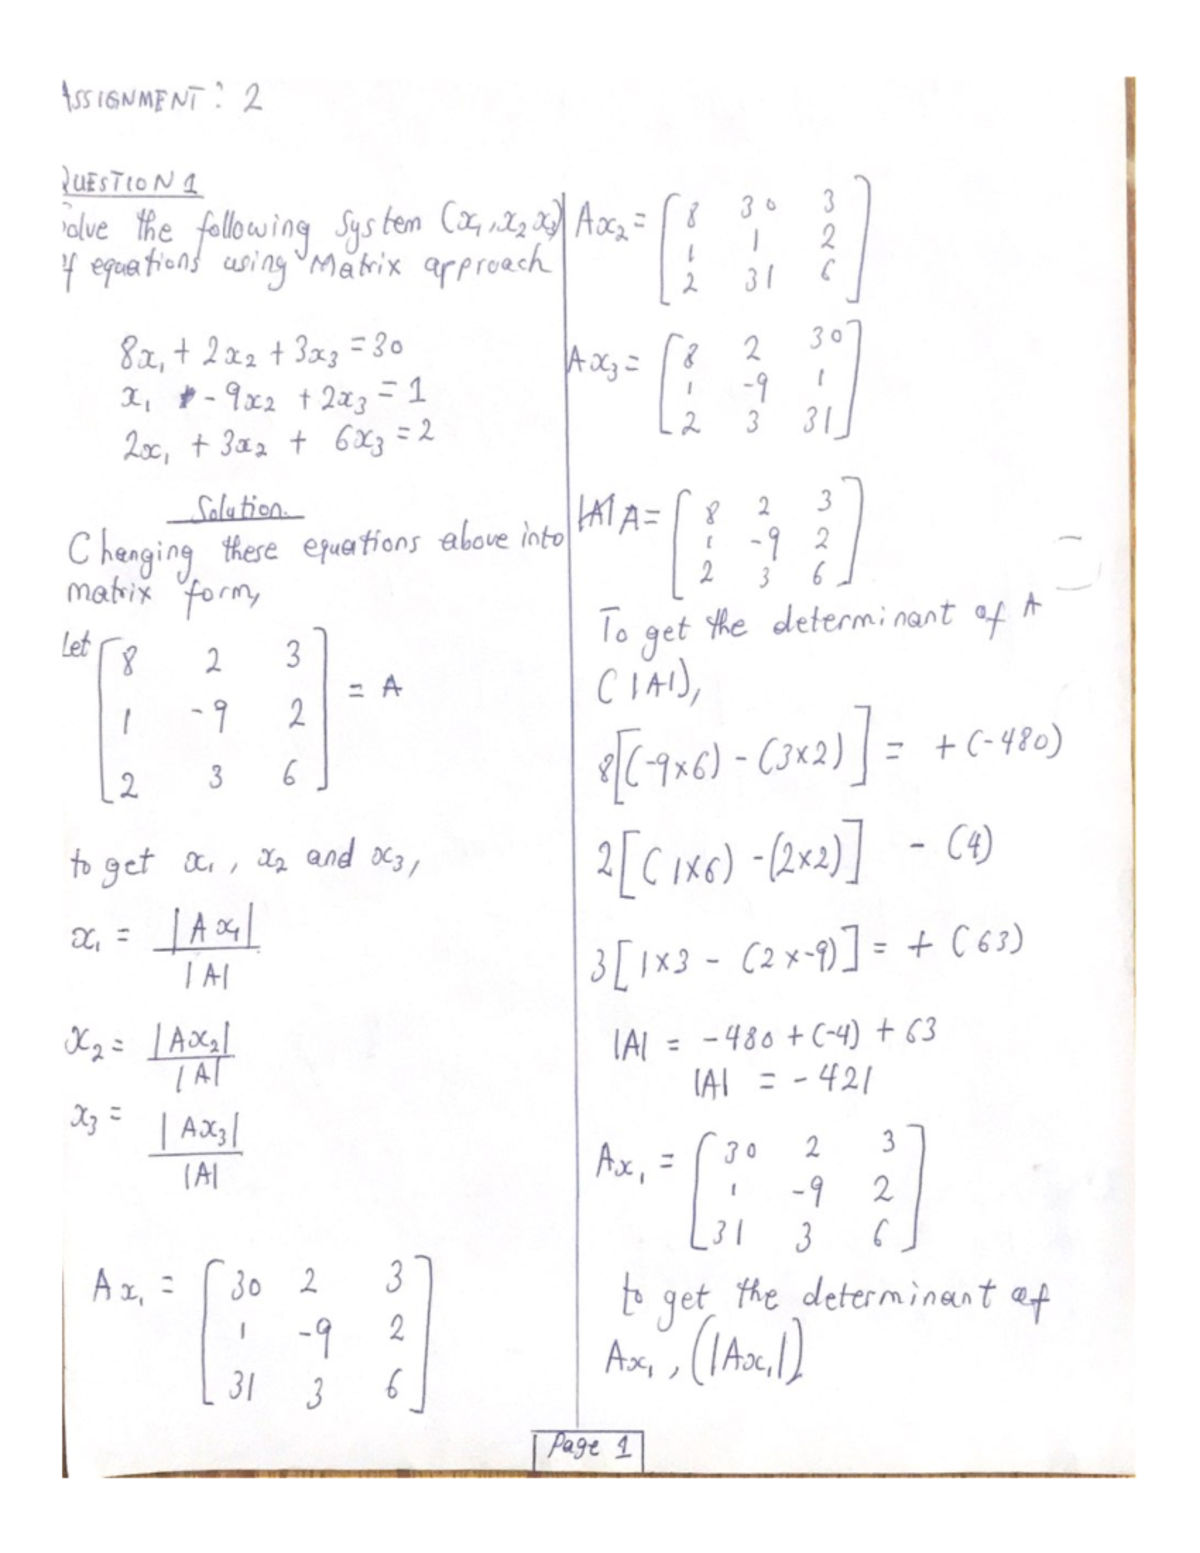 ASSIGNMENT: 2
QUESTION 1
Solve the following System (x1, x2 x3)
of equations using Matrix approach
8x1 + 2x2 + 3x3 = 30
x1 - 9x2 + 2x3 = 1
2x1 + 3x2 + 6x3 = 2
Solution.
Changing these equations above into
matrix form,
Let [ 8 2 3
1 -9 2
2 3 6 ] = A
to get x1, x2 and x3,
x1 = |Ax1|
|A|
x2 = |Ax2|
|A|
x3 = |Ax3|
|A|
Ax1 = [ 30 2 3
1 -9 2
31 3 6 ]
Ax2 = [ 8 30 3
1 1 2
2 31 6 ]
Ax3 = [ 8 2 30
1 -9 1
2 3 31 ]
A = [ 8 2 3
1 -9 2
2 3 6 ]
To get the determinant of A
(|A|),
8[(-9×6) - (3×2)] = +(-480)
2[(1×6) - (2×2)] - (4)
3[1×3 - (2×-9)] = + (63)
|A| = -480 + (-4) + 63
|A| = -421
Ax1 = [ 30 2 3
1 -9 2
31 3 6 ]
to get the determinant of
Ax1, (|Ax1|)
Page 1